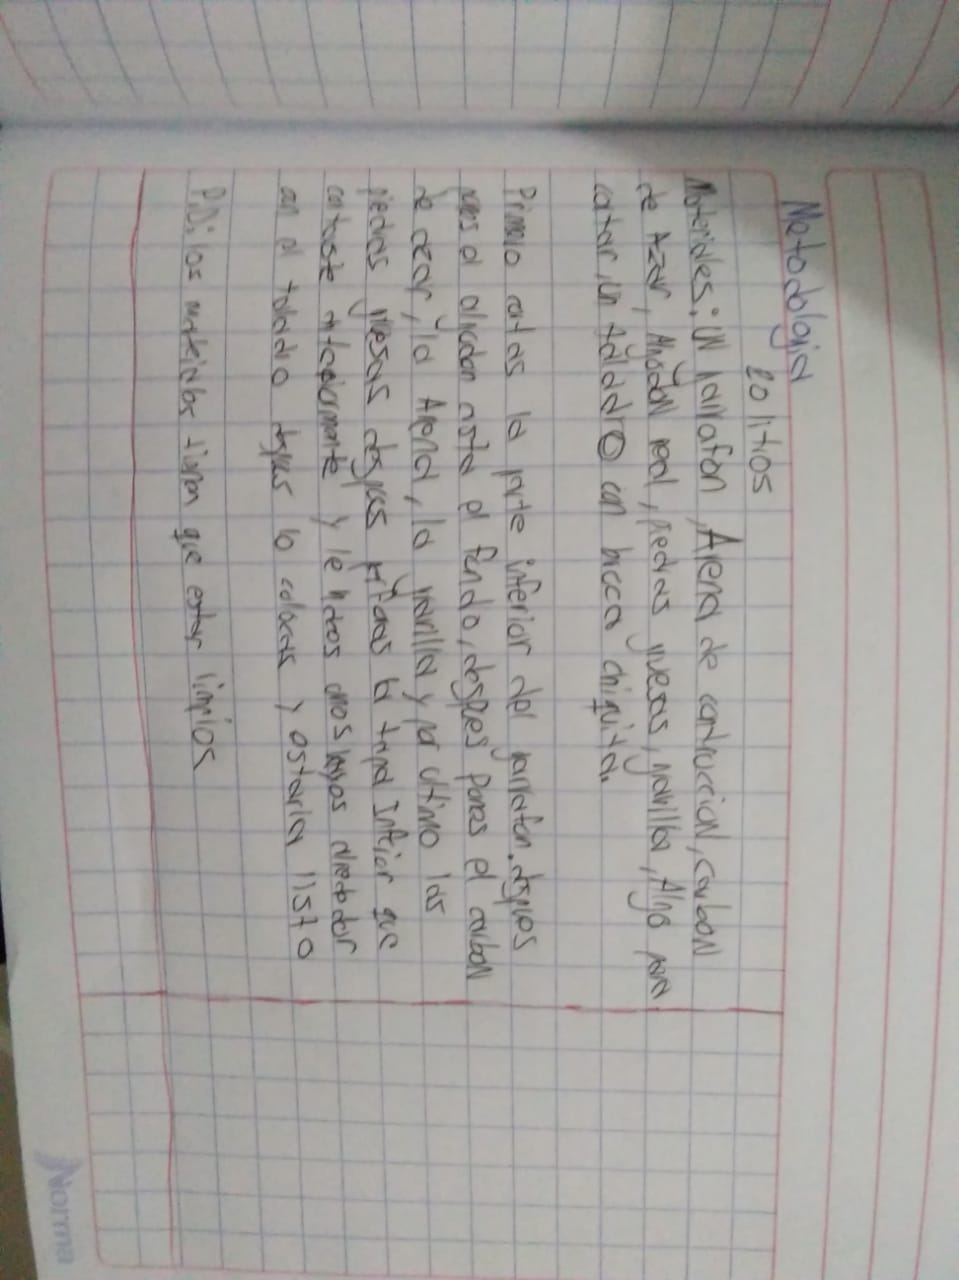 Metodologia
20 litros
Materiales: UN garrafon, Arena de contruccion, carbon
de Azar, Algodon real, piedras gruesas, gravilla, Algo para
cortar, un taladro con brocca chiquita.
Primero cortas la parte inferior del garrafon, despues
pones el algodon asta el fondo, despues Pones el carbon
de azar, la Arena, la gravilla y por ultimo las
piedras gruesas despues la tapa Inferior que
cortaste interiormente y le hases unos hoyos alrededor
con el taladro despues lo colocas y estaria listo
PD: los materiales tienen que estar limpios
Norma